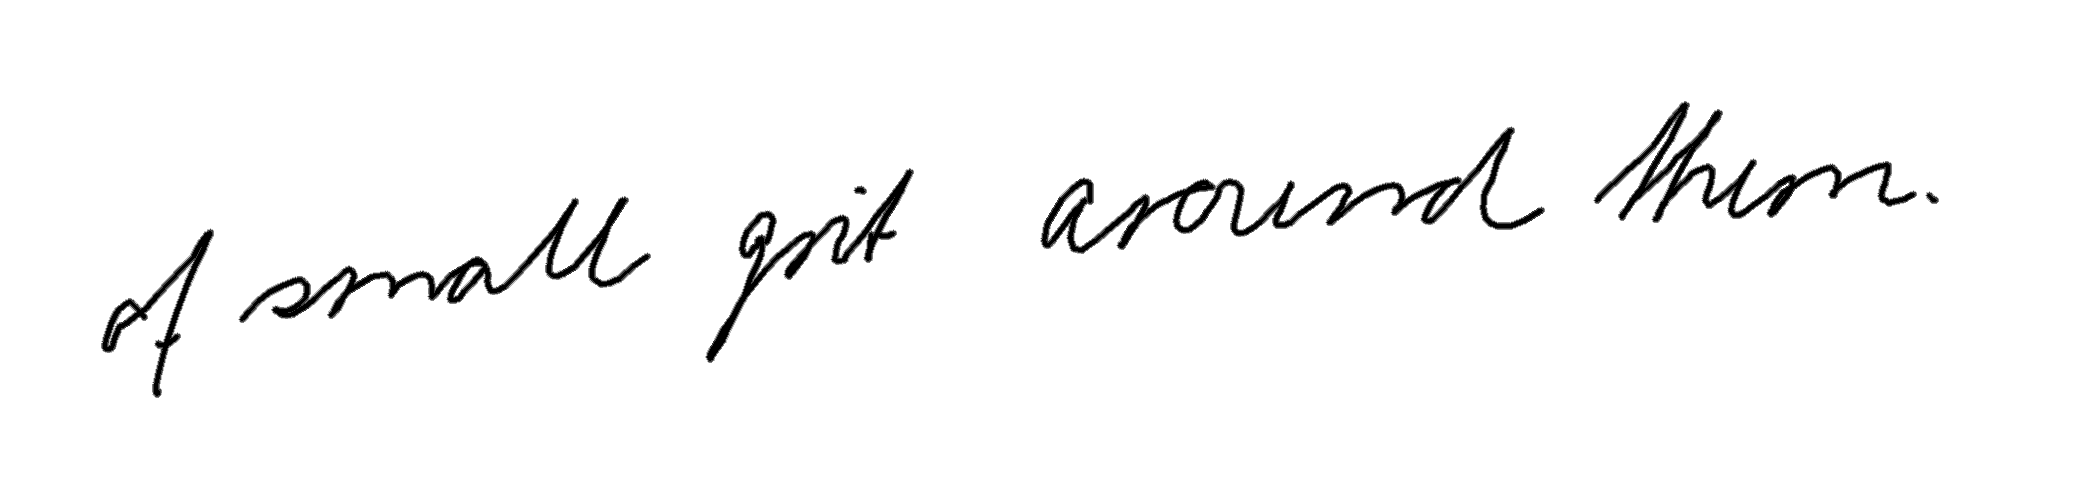 of small grit around them.